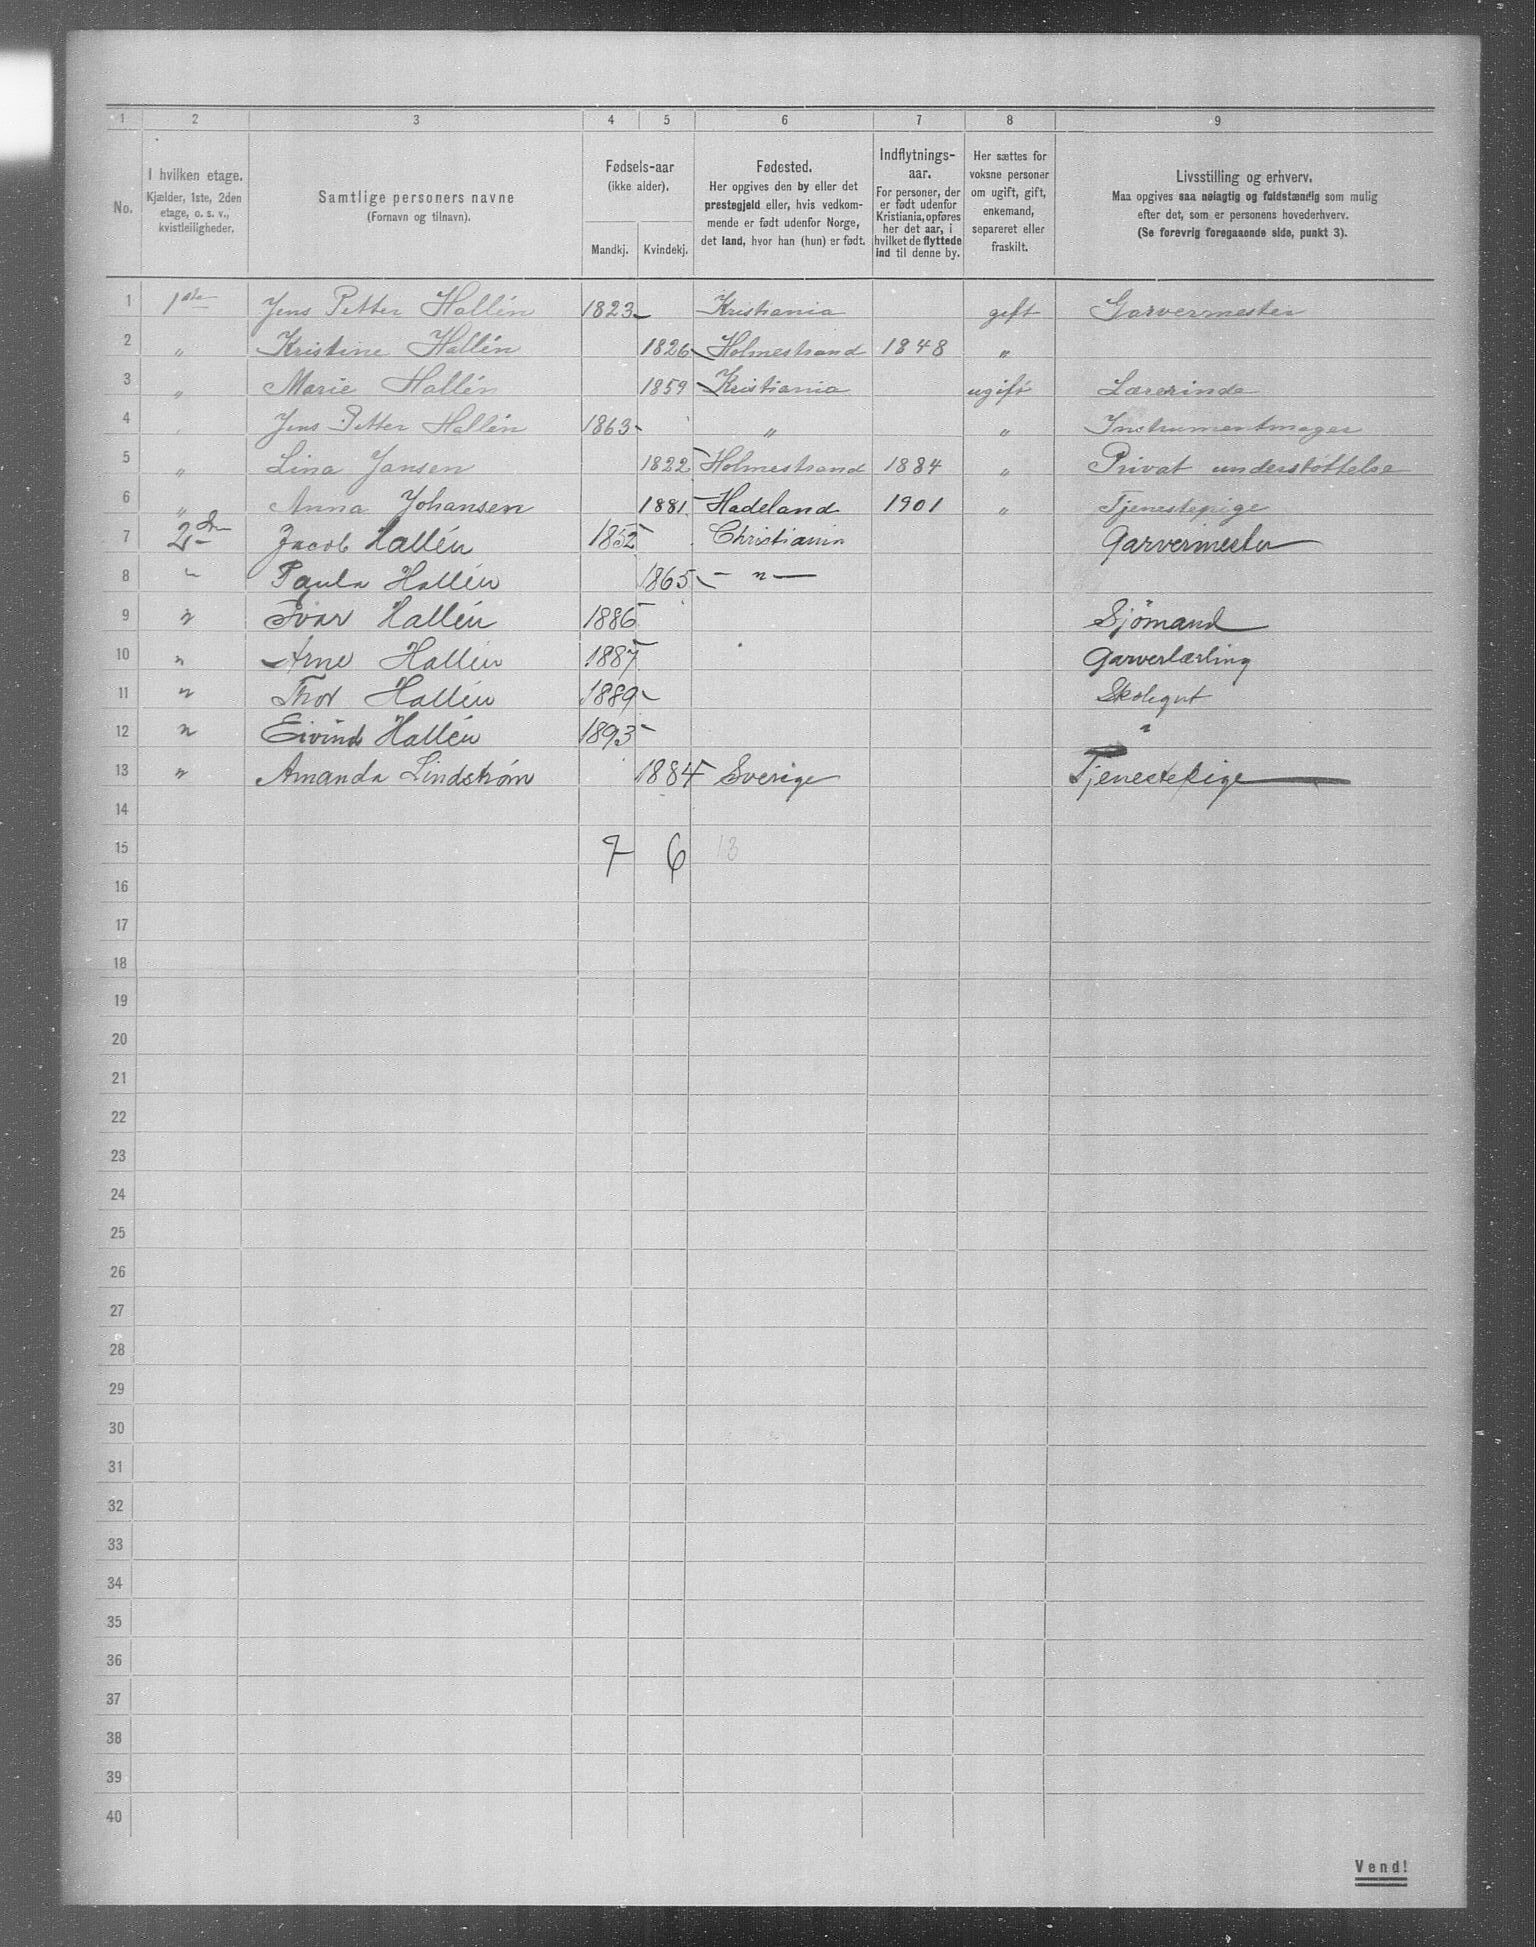 1 2 3 4 5 6 7 8 9
No.
I hvilken etage.
Kjælder, 1ste, 2den
etage, o. s. v.,
kvistleiligheder.
Samtlige personers navne
(Fornavn og tilnavn).
Fødsels-aar
(ikke alder).
Mandkj. Kvindekj.
Fødested.
Her opgives den by eller det
prestegjeld eller, hvis vedkom-
mende er født udenfor Norge,
det land, hvor han (hun) er født.
Indflytnings-
aar.
For personer, der
er født udenfor
Kristiania, opføres
her det aar, i
hvilket de flyttede
ind til denne by.
Her sættes for
voksne personer
om ugift, gift,
enkemand,
separeret eller
fraskilt.
Livsstilling og erhverv.
Maa opgives saa nøiagtig og fuldstændig som mulig
efter det, som er personens hovederhverv.
(Se forøvrig foregaaende side, punkt 3).
1 1ste Jens Petter Hallén 1823 Kristiania gift Garvermester
2 " Kristine Hallén 1826 Holmestrand 1848 "
3 " Marie Hallén 1859 Kristiania ugift Lærerinde
4 " Jens Petter Hallén 1863 " " Instrumentmager
5 " Lina Jansen 1822 Holmestrand 1884 " Privat understøttelse
6 " Anna Johansen 1881 Hadeland 1901 " Tjenestepige
7 2den Jacob Hallén 1852 Christiania Garvermester
8 " Paula Hallén 1865 — " —
9 " Ivar Hallén 1886 Sjømand
10 " Arne Hallén 1887 Garverlærling
11 " Thor Hallén 1889 Skolegut
12 " Eivind Hallén 1893 "
13 " Amanda Lindstrøm 1884 Sverige Tjenestepige
14
15 7 6 13
16
17
18
19
20
21
22
23
24
25
26
27
28
29
30
31
32
33
34
35
36
37
38
39
40
Vend!